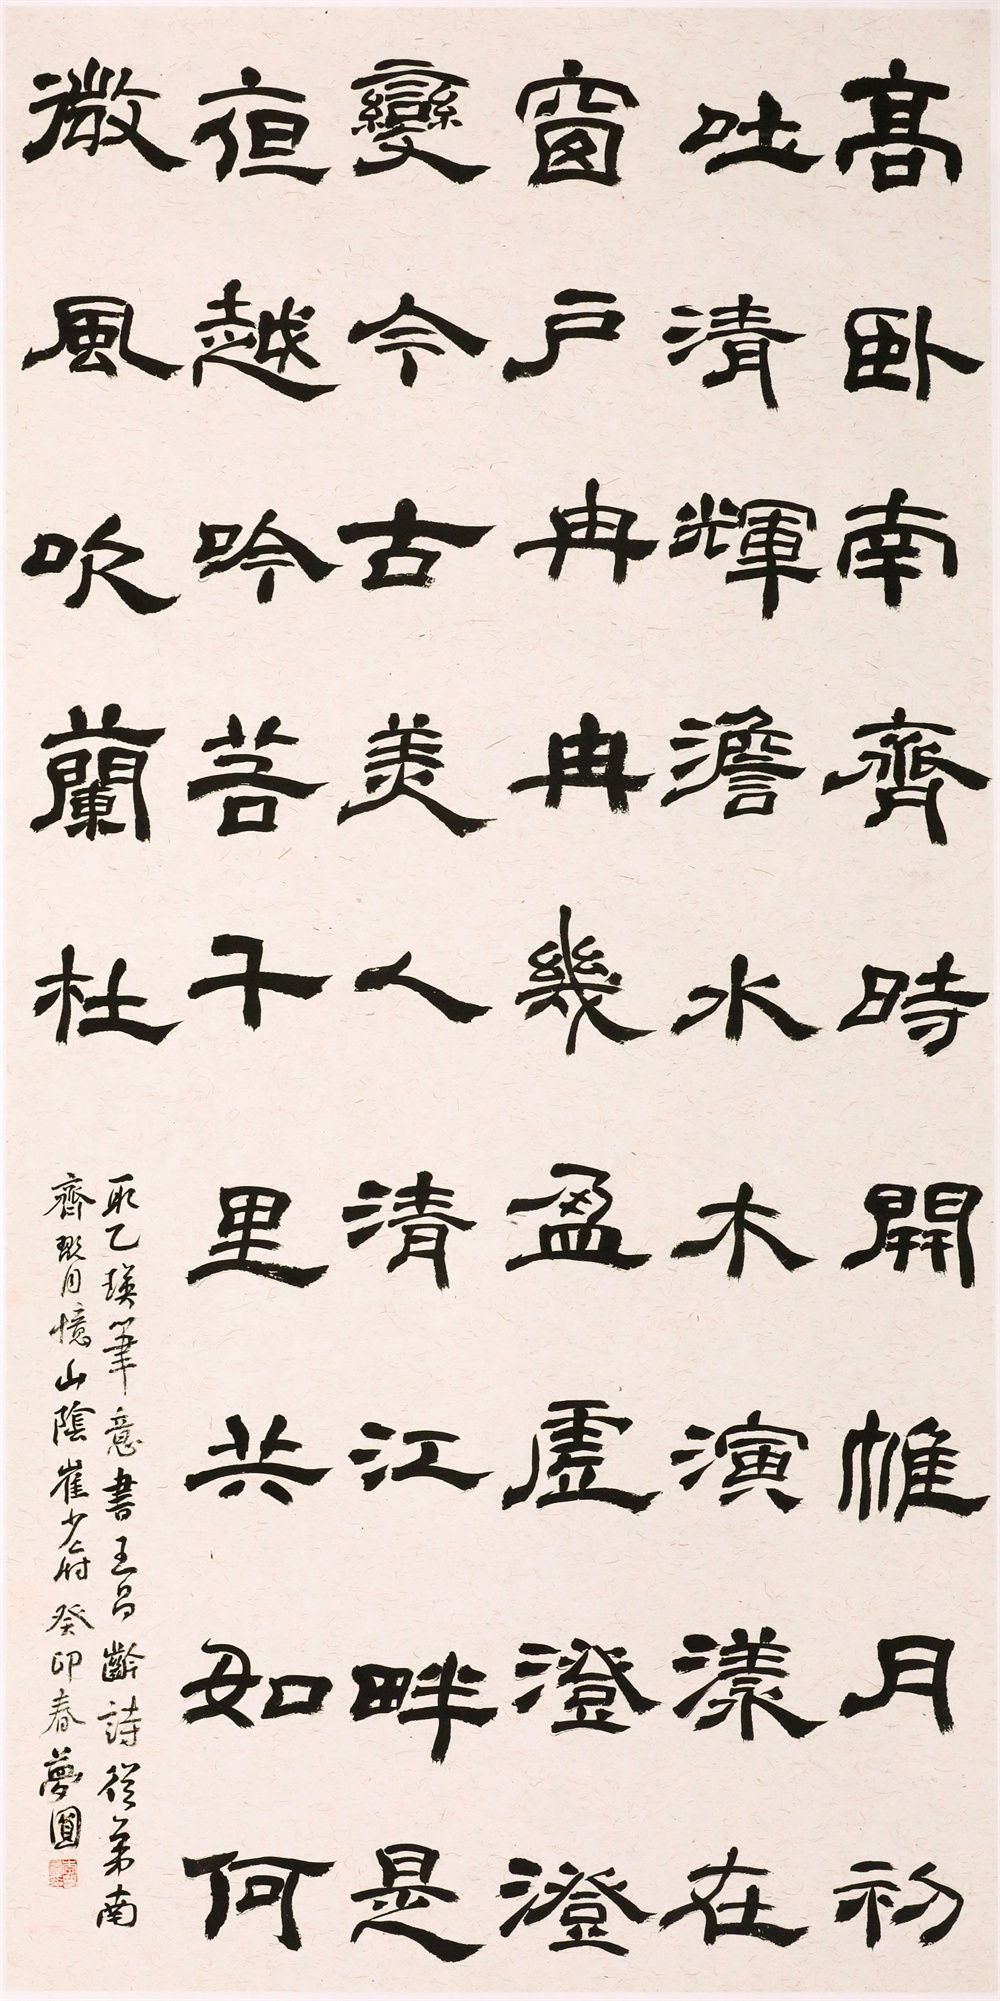 高卧南齊時開帷月初
吐清輝澹水木演漾在
窗戶冉冉幾盈虛澄澄
變今古美人清江畔是
夜越吟苦千里共如何
微風吹蘭杜
取乙瑛筆意書王昌齡詩從弟南
齊翫月憶山陰崔少府癸卯春夢圓